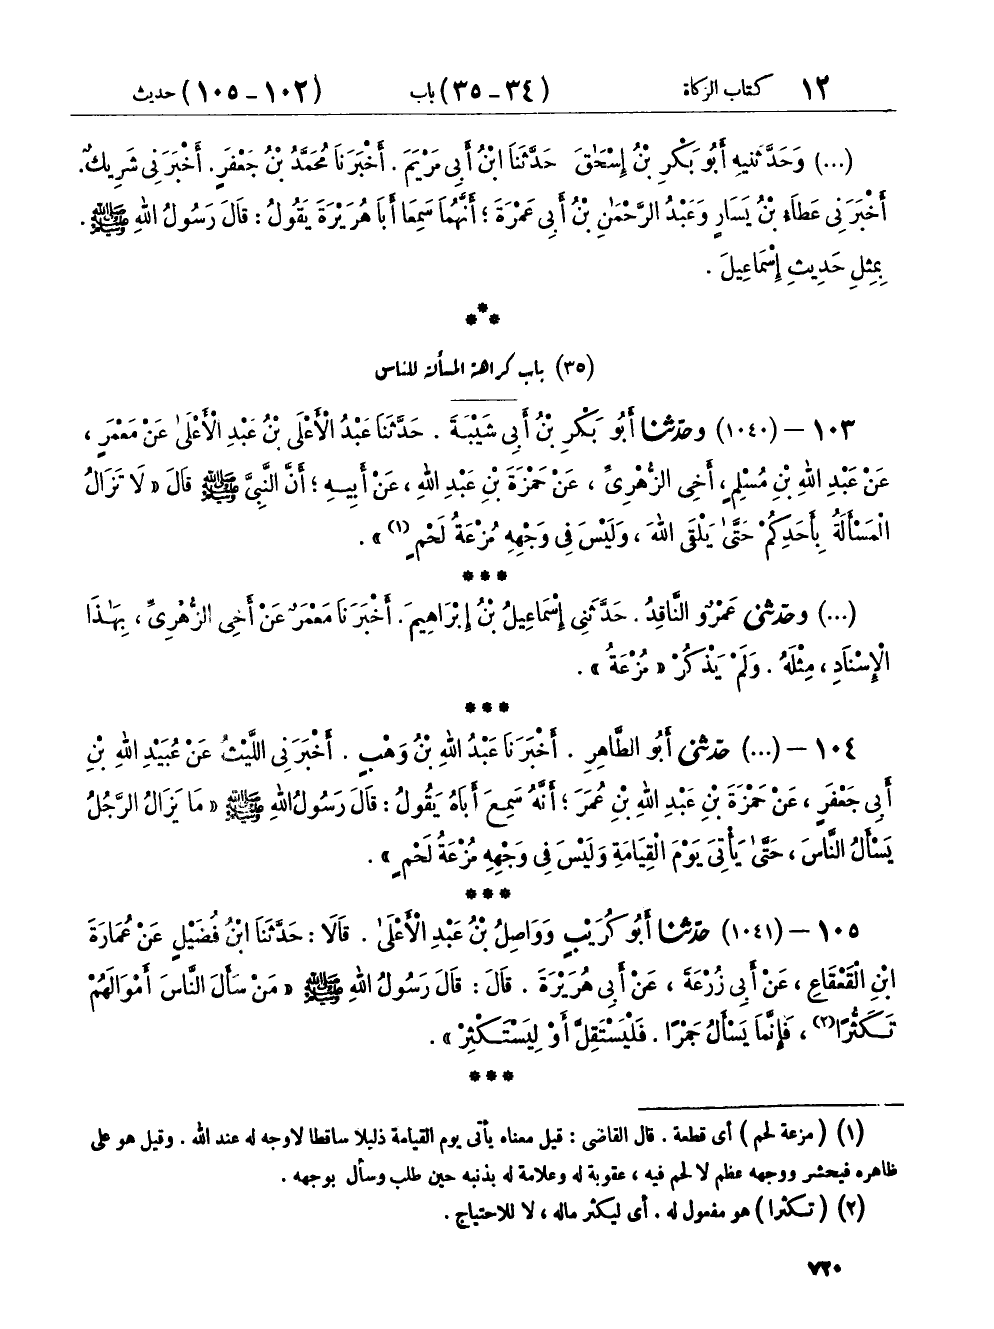 ١٢ كتاب الزكاة (٣٤ - ٣٥) باب (١٠٢ - ١٠٥) حديث
(...) وَحَدَّثَنِيهِ أَبُو بَكْرِ بْنُ إِسْحَٰقَ حَدَّثَنَا ابْنُ أَبِي مَرْيَمَ . أَخْبَرَنَا مُحَمَّدُ بْنُ جَعْفَرٍ . أَخْبَرَنِي شَرِيكٌ .
أَخْبَرَنِي عَطَاءُ بْنُ يَسَارٍ وَعَبْدُ الرَّحْمَٰنِ بْنُ أَبِي عَمْرَةَ ؛ أَنَّهُمَا سَمِعَا أَبَا هُرَيْرَةَ يَقُولُ : قَالَ رَسُولُ اللهِ ﷺ .
بِمِثْلِ حَدِيثِ إِسْمَاعِيلَ .
***
(٣٥) باب كراهة المسألة للناس
١٠٣ – (١٠٤٠) وحَدَّثَنَا أَبُو بَكْرِ بْنُ أَبِي شَيْبَةَ . حَدَّثَنَا عَبْدُ الْأَعْلَى بْنُ عَبْدِ الْأَعْلَىٰ عَنْ مَعْمَرٍ ،
عَنْ عَبْدِ اللهِ بْنِ مُسْلِمٍ ، أَخِي الزُّهْرِيِّ ، عَنْ حَمْزَةَ بْنِ عَبْدِ اللهِ ، عَنْ أَبِيهِ ؛ أَنَّ النَّبِيَّ ﷺ قَالَ « لَا تَزَالُ
الْمَسْأَلَةُ بِأَحَدِكُمْ حَتَّىٰ يَلْقَى اللهَ ، وَلَيْسَ فِي وَجْهِهِ مُزْعَةُ لَحْمٍ (١) » .
***
(...) وحَدَّثَنِي عَمْرٌو النَّاقِدُ . حَدَّثَنِي إِسْمَاعِيلُ بْنُ إِبْرَاهِيمَ . أَخْبَرَنَا مَعْمَرٌ عَنْ أَخِي الزُّهْرِيِّ ، بِهَٰذَا
الْإِسْنَادِ ، مِثْلَهُ . وَلَمْ يَذْكُرْ « مُزْعَةُ » .
***
١٠٤ – (...) حَدَّثَنِي أَبُو الطَّاهِرِ . أَخْبَرَنَا عَبْدُ اللهِ بْنُ وَهْبٍ . أَخْبَرَنِي اللَّيْثُ عَنْ عُبَيْدِ اللهِ بْنِ
أَبِي جَعْفَرٍ ، عَنْ حَمْزَةَ بْنِ عَبْدِ اللهِ بْنِ عُمَرَ ؛ أَنَّهُ سَمِعَ أَبَاهُ يَقُولُ : قَالَ رَسُولُ اللهِ ﷺ « مَا يَزَالُ الرَّجُلُ
يَسْأَلُ النَّاسَ ، حَتَّىٰ يَأْتِيَ يَوْمَ الْقِيَامَةِ وَلَيْسَ فِي وَجْهِهِ مُزْعَةُ لَحْمٍ » .
***
١٠٥ – (١٠٤١) حَدَّثَنَا أَبُو كُرَيْبٍ وَوَاصِلُ بْنُ عَبْدِ الْأَعْلَىٰ . قَالَا : حَدَّثَنَا ابْنُ فُضَيْلٍ عَنْ عُمَارَةَ
ابْنِ الْقَعْقَاعِ ، عَنْ أَبِي زُرْعَةَ ، عَنْ أَبِي هُرَيْرَةَ . قَالَ : قَالَ رَسُولُ اللهِ ﷺ « مَنْ سَأَلَ النَّاسَ أَمْوَالَهُمْ
تَكَثُّرًا (٢) ، فَإِنَّمَا يَسْأَلُ جَمْرًا . فَلْيَسْتَقِلَّ أَوْ لِيَسْتَكْثِرْ » .
***
(١) (مزعة لحم) أى قطعة . قال القاضى : قيل معناه يأتى يوم القيامة ذليلا ساقطا لاوجه له عند الله . وقيل هو على
ظاهره فيحشر ووجهه عظم لا لحم فيه ، عقوبة له وعلامة له بذنبه حين طلب وسأل بوجهه .
(٢) (تكثرا) هو مفعول له . أى ليكثر ماله ، لا للاحتياج .
٧٢٠